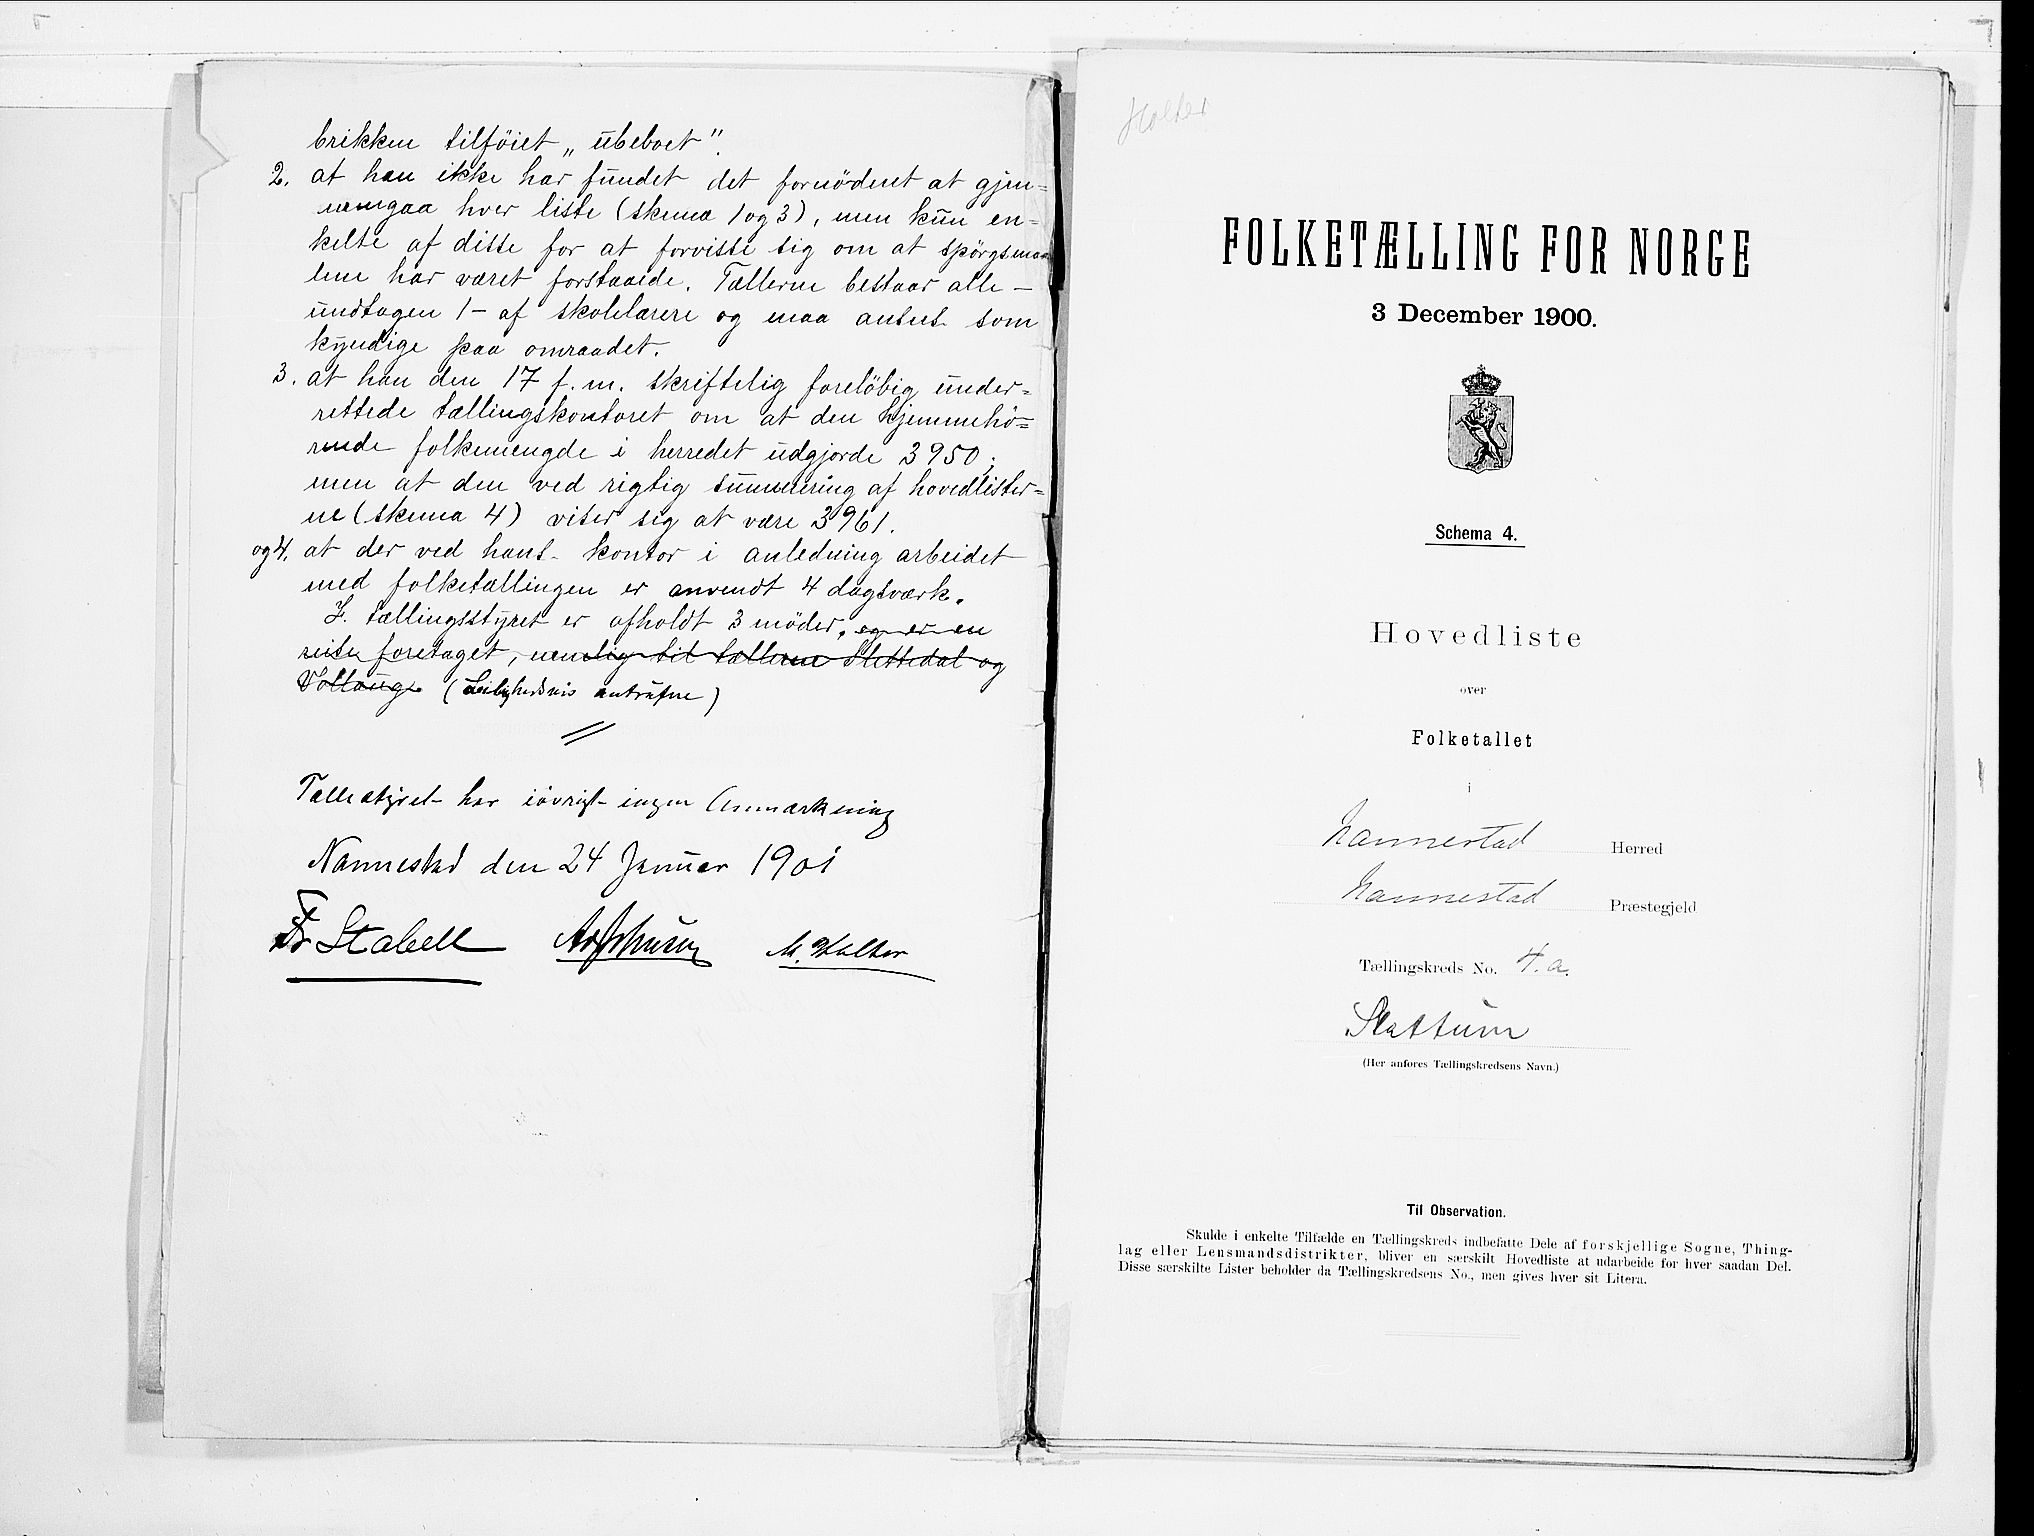 brikken tilföiet „ubeboet”.
2. at han ikke har fundet det fornödent at gjen=
nemgaa hver liste (skema 1 og 3), men kun en=
kelte af disse for at forvisse sig om at spörgsmaa
lene har været forstaaede. Tællerne bestaar alle –
undtagen 1 – af skolelærere og maa antas som
kyndige paa omraadet.
3. at han den 17 f. m. skriftelig foreløbig under=
rettede tællingskontoret om at den hjemmehö=
rende folkemengde i herredet udgjorde 3950;
men at den ved rigtig summering af hovedlister=
ne (skema 4) viser sig at være 3961.
og 4. at der ved hans kontor i anledning arbeidet
med folketællingen er anvendt 4 dagsværk.
I tællingsstyret er afholdt 3 möder, og er en
reise foretaget, nemlig til tællerne Slettedal og
(Leilighedsvis antrufne)
Tællestyret har iövrigt ingen Anmærkning
Nannestad den 24 Januar 1901
Fr Stabell M. Holter
Holter
FOLKETÆLLING FOR NORGE
3 December 1900.
Schema 4.
Hovedliste
over
Folketallet
i
Nannestad Herred
Nannestad Præstegjeld
Tællingskreds No. 4.a.
Slattum
(Her anføres Tællingskredsens Navn.)
Til Observation.
Skulde i enkelte Tilfælde en Tællingskreds indbefatte Dele af forskjellige Sogne, Thing-
lag eller Lensmandsdistrikter, bliver en særskilt Hovedliste at udarbeide for hver saadan Del.
Disse særskilte Lister beholder da Tællingskredsens No., men gives hver sit Litera.